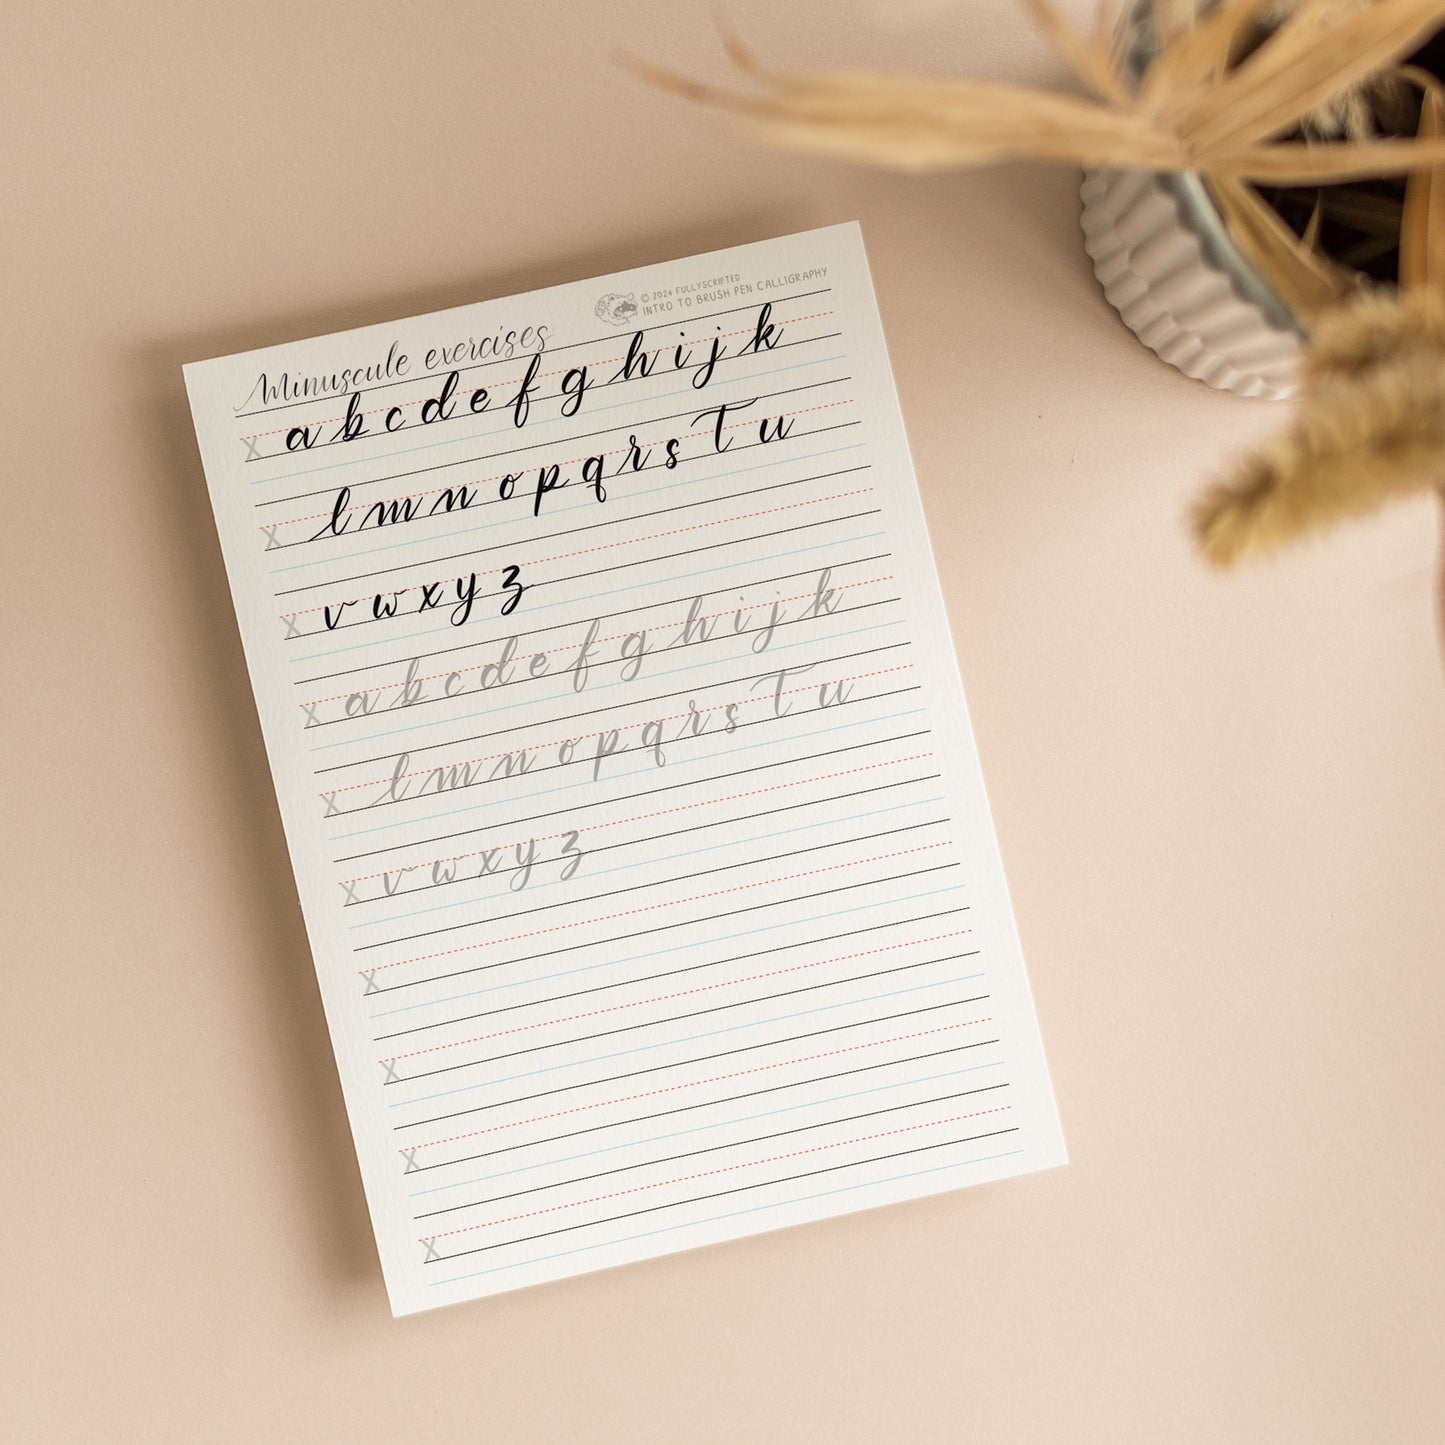 Minuscule exercises
© 2024 FULLYSCRIPTED
INTRO TO BRUSH PEN CALLIGRAPHY
X a b c d e f g h i j k
X l m n o p q r s T u
X v w x y z
X a b c d e f g h i j k
X l m n o p q r s T u
X v w x y z
X
X
X
X